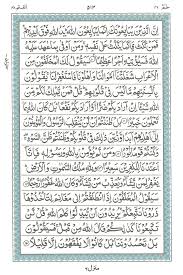 حٰمٓ ٢٦ ٥١٣ الفتح ٤٨
اِنَّ الَّذِیْنَ یُبَایِعُوْنَكَ اِنَّمَا یُبَایِعُوْنَ اللّٰهَ یَدُ اللّٰهِ فَوْقَ اَیْدِیْهِمْ
فَمَنْ نَّكَثَ فَاِنَّمَا یَنْكُثُ عَلٰی نَفْسِهٖ وَمَنْ اَوْفٰی بِمَا عٰهَدَ عَلَیْهُ
اللّٰهَ فَسَیُؤْتِیْهِ اَجْرًا عَظِیْمًا سَیَقُوْلُ لَكَ الْمُخَلَّفُوْنَ مِنَ
الْاَعْرَابِ شَغَلَتْنَاۤ اَمْوَالُنَا وَاَهْلُوْنَا فَاسْتَغْفِرْ لَنَا یَقُوْلُوْنَ
بِاَلْسِنَتِهِمْ مَّا لَیْسَ فِیْ قُلُوْبِهِمْ قُلْ فَمَنْ یَّمْلِكُ لَكُمْ مِّنَ اللّٰهِ
شَیْـًٔا اِنْ اَرَادَ بِكُمْ ضَرًّا اَوْ اَرَادَ بِكُمْ نَفْعًا بَلْ كَانَ اللّٰهُ بِمَا
تَعْمَلُوْنَ خَبِیْرًا بَلْ ظَنَنْتُمْ اَنْ لَّنْ یَّنْقَلِبَ الرَّسُوْلُ وَالْمُؤْمِنُوْنَ
اِلٰۤی اَهْلِیْهِمْ اَبَدًا وَّزُیِّنَ ذٰلِكَ فِیْ قُلُوْبِكُمْ وَظَنَنْتُمْ ظَنَّ السَّوْءِ
وَكُنْتُمْ قَوْمًۢا بُوْرًا وَمَنْ لَّمْ یُؤْمِنْۢ بِاللّٰهِ وَرَسُوْلِهٖ فَاِنَّاۤ
اَعْتَدْنَا لِلْكٰفِرِیْنَ سَعِیْرًا وَلِلّٰهِ مُلْكُ السَّمٰوٰتِ وَالْاَرْضِ
یَغْفِرُ لِمَنْ یَّشَآءُ وَیُعَذِّبُ مَنْ یَّشَآءُ وَكَانَ اللّٰهُ غَفُوْرًا رَّحِیْمًا
سَیَقُوْلُ الْمُخَلَّفُوْنَ اِذَا انْطَلَقْتُمْ اِلٰی مَغَانِمَ لِتَاْخُذُوْهَا
ذَرُوْنَا نَتَّبِعْكُمْ یُرِیْدُوْنَ اَنْ یُّبَدِّلُوْا كَلٰمَ اللّٰهِ قُلْ لَّنْ
تَتَّبِعُوْنَا كَذٰلِكُمْ قَالَ اللّٰهُ مِنْ قَبْلُ فَسَیَقُوْلُوْنَ
بَلْ تَحْسُدُوْنَنَا بَلْ كَانُوْا لَا یَفْقَهُوْنَ اِلَّا قَلِیْلًا
منزل ٦